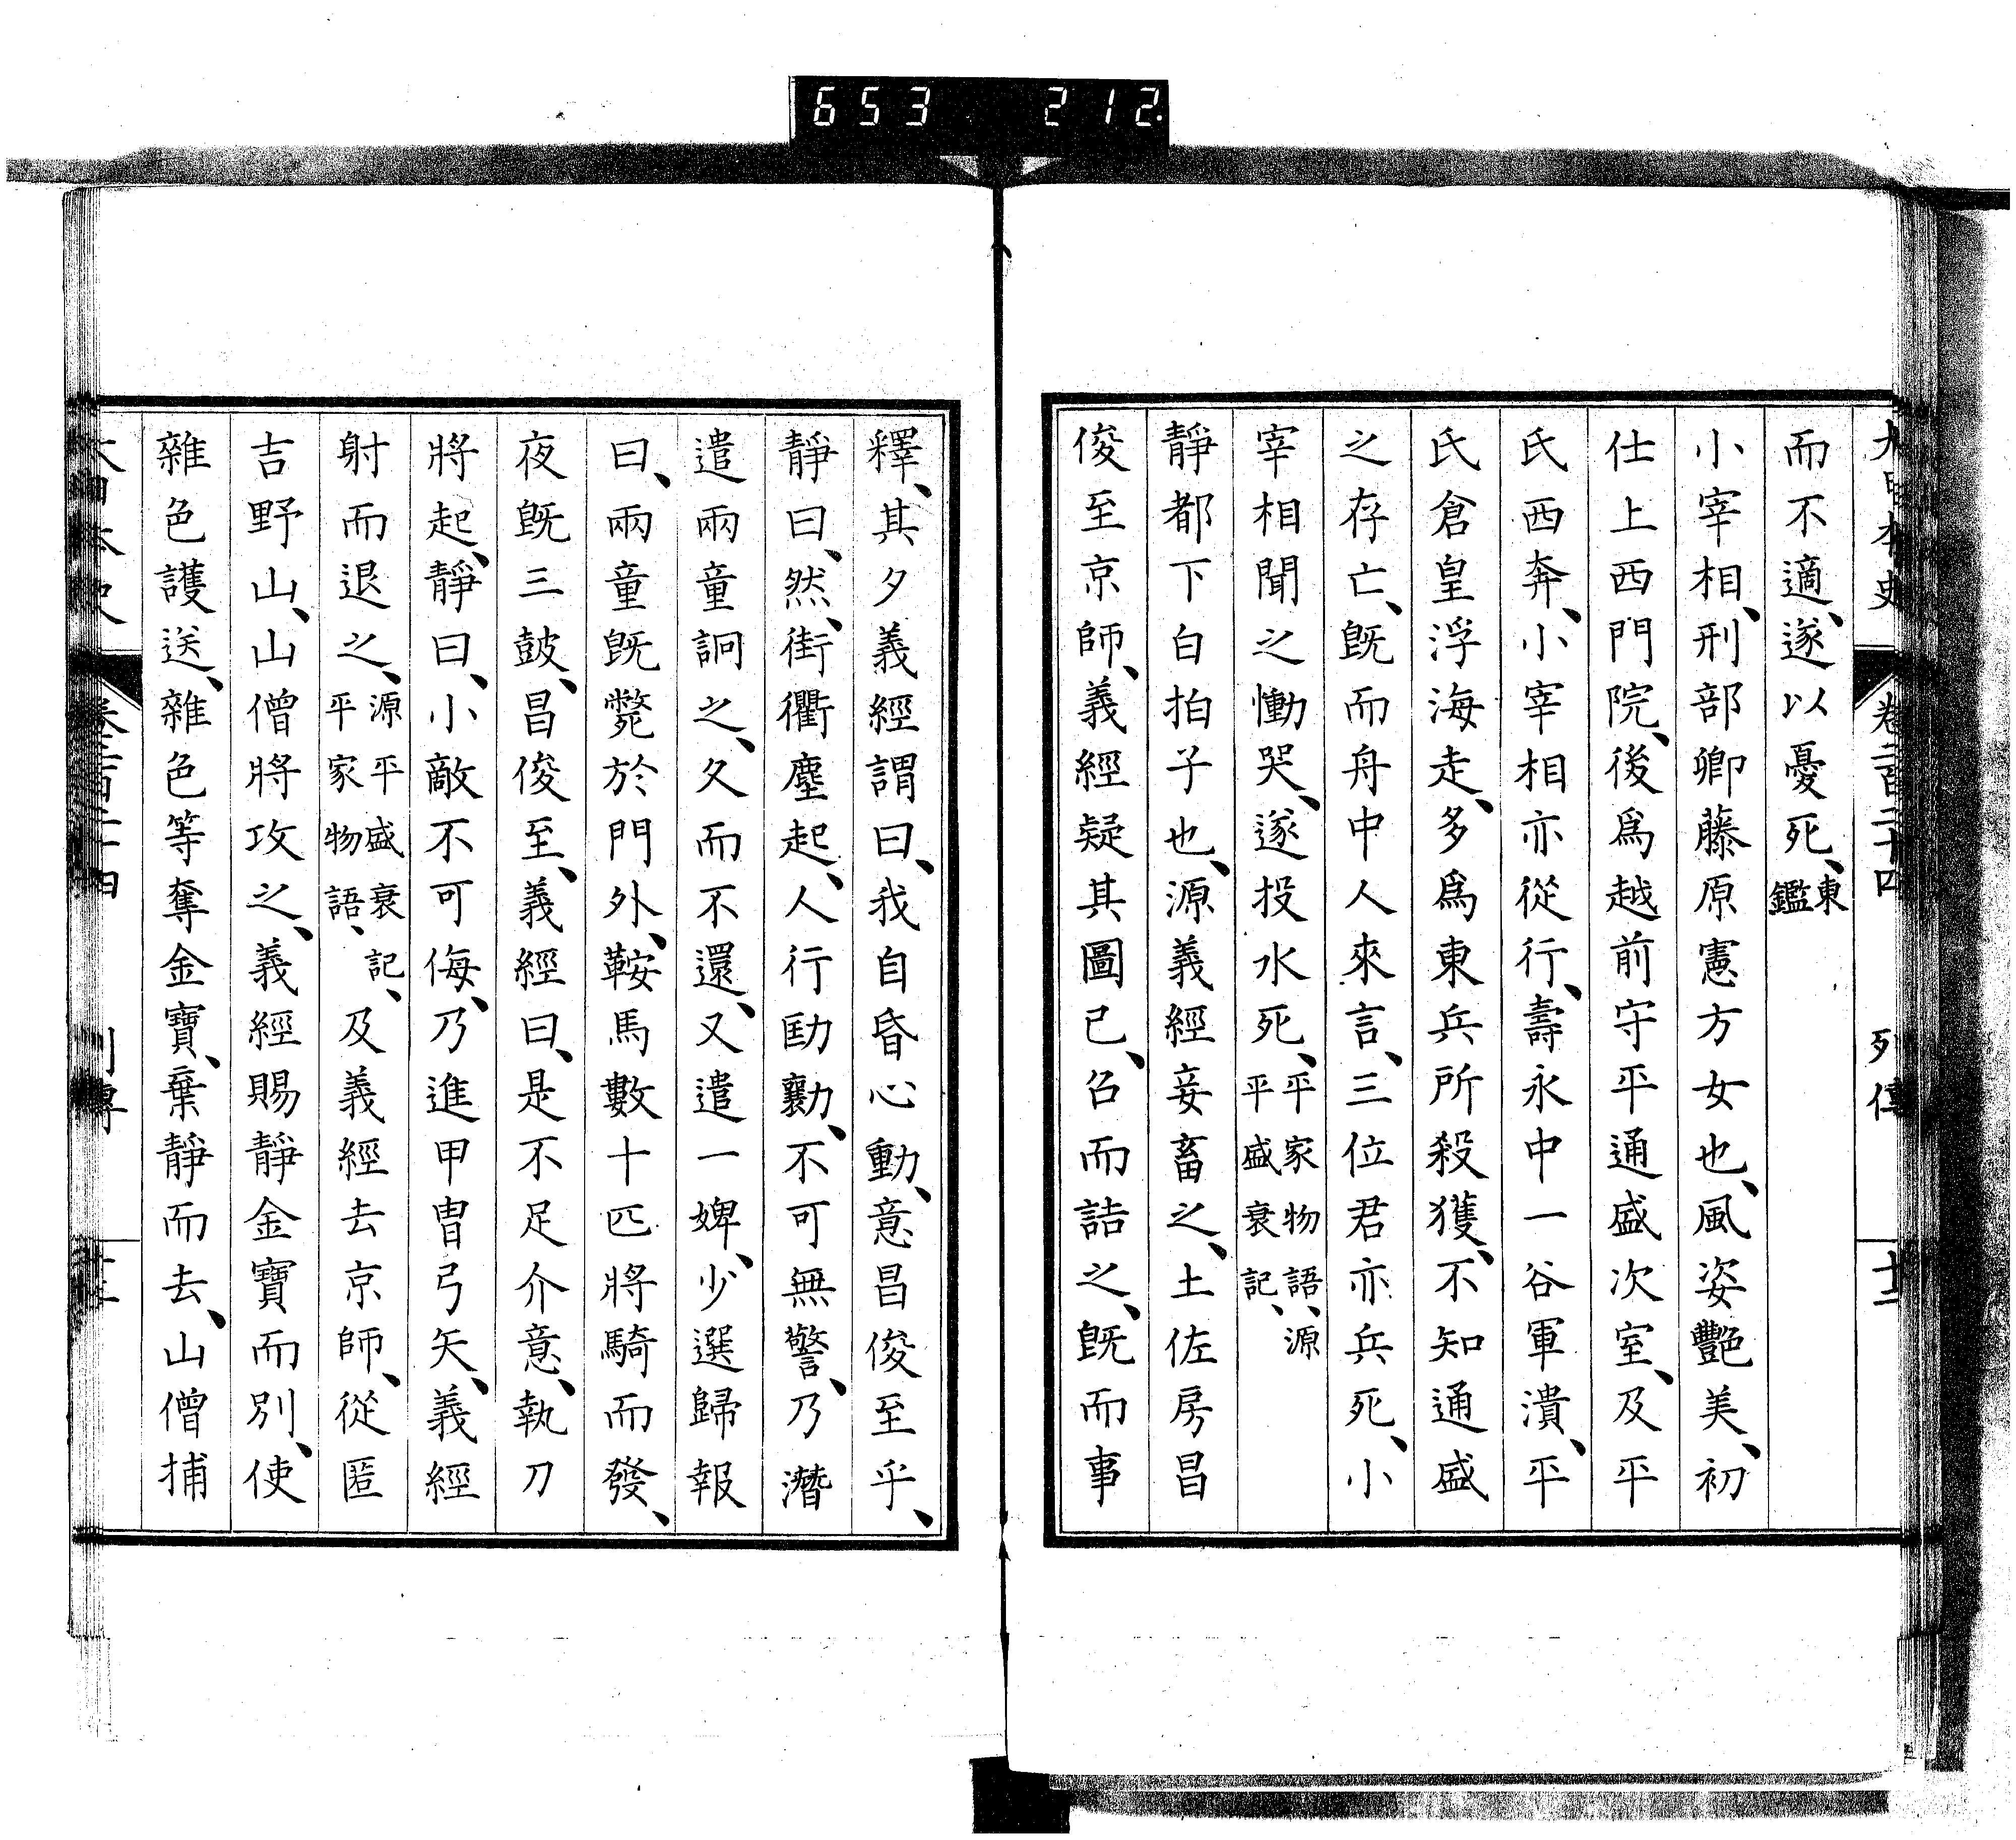 653 212
大日本史 卷二百二十四 列傳 十二
而不適、遂以憂死、東鑑
小宰相、刑部卿藤原憲方女也、風姿艷美、初
仕上西門院、後爲越前守平通盛次室、及平
氏西奔、小宰相亦從行、壽永中一谷軍潰、平
氏倉皇浮海走、多爲東兵所殺獲、不知通盛
之存亡、既而舟中人來言、三位君亦兵死、小
宰相聞之慟哭、遂投水死、平家物語、源平盛衰記、
靜都下白拍子也、源義經妾畜之、土佐房昌
俊至京師、義經疑其圖己、召而詰之、既而事
釋、其夕義經謂曰、我自昏心動、意昌俊至乎、
靜曰、然、街衢塵起、人行劻勷、不可無警、乃潛
遣兩童詗之、久而不還、又遣一婢、少選歸報
曰、兩童既斃於門外、鞍馬數十匹將騎而發、
夜既三鼓、昌俊至、義經曰、是不足介意、執刀
將起、靜曰、小敵不可侮、乃進甲冑弓矢、義經
射而退之、源平盛衰記、平家物語、及義經去京師、從匿
吉野山、山僧將攻之、義經賜靜金寶而別、使
雜色護送、雜色等奪金寶、棄靜而去、山僧捕
大日本史 卷二百二十四 列傳